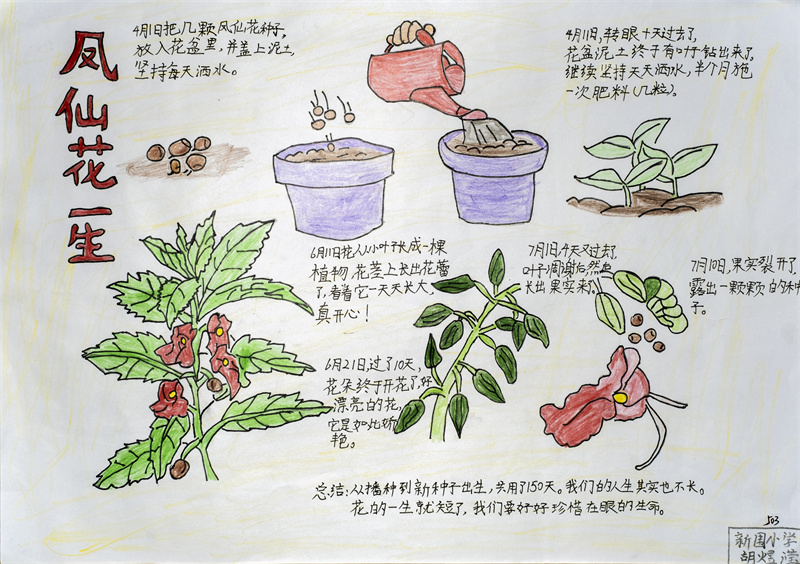 凤仙花一生
4月1日把几颗凤仙花种子,
放入花盆里,并盖上泥土,
坚持每天洒水。
4月11日,转眼十天过去了,
花盆泥土终于有叶子钻出来了。
继续坚持天天洒水,半个月施
一次肥料(几粒)。
6月11日花从小叶子长成一棵
植物,花茎上长出花蕾
了,看着它一天天长大,
真开心!
7月1日,十天又过去了,
叶子凋谢后,然
长出果实来。
7月10日,果实裂开了,
露出一颗颗的种
子。
6月21日,过了10天,
花朵终于开花了,好
漂亮的花,
它是如此娇
艳。
总结:从播种到新种子出生,共用了150天。我们的人生其实也不长。
花的一生就短了,我们要好好珍惜在眼的生命。
503
新围小学
胡煜滢